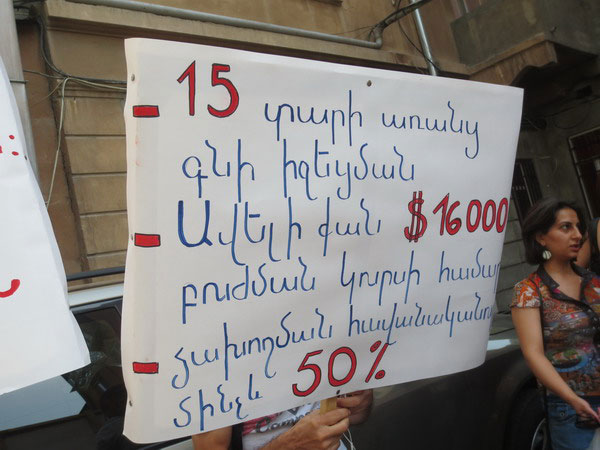 - 15 տարի առանց
գնի իջեցման
- Ավելի քան $16000
բուժման կուրսի համար
- ձախողման հավանականու
մինչև 50%